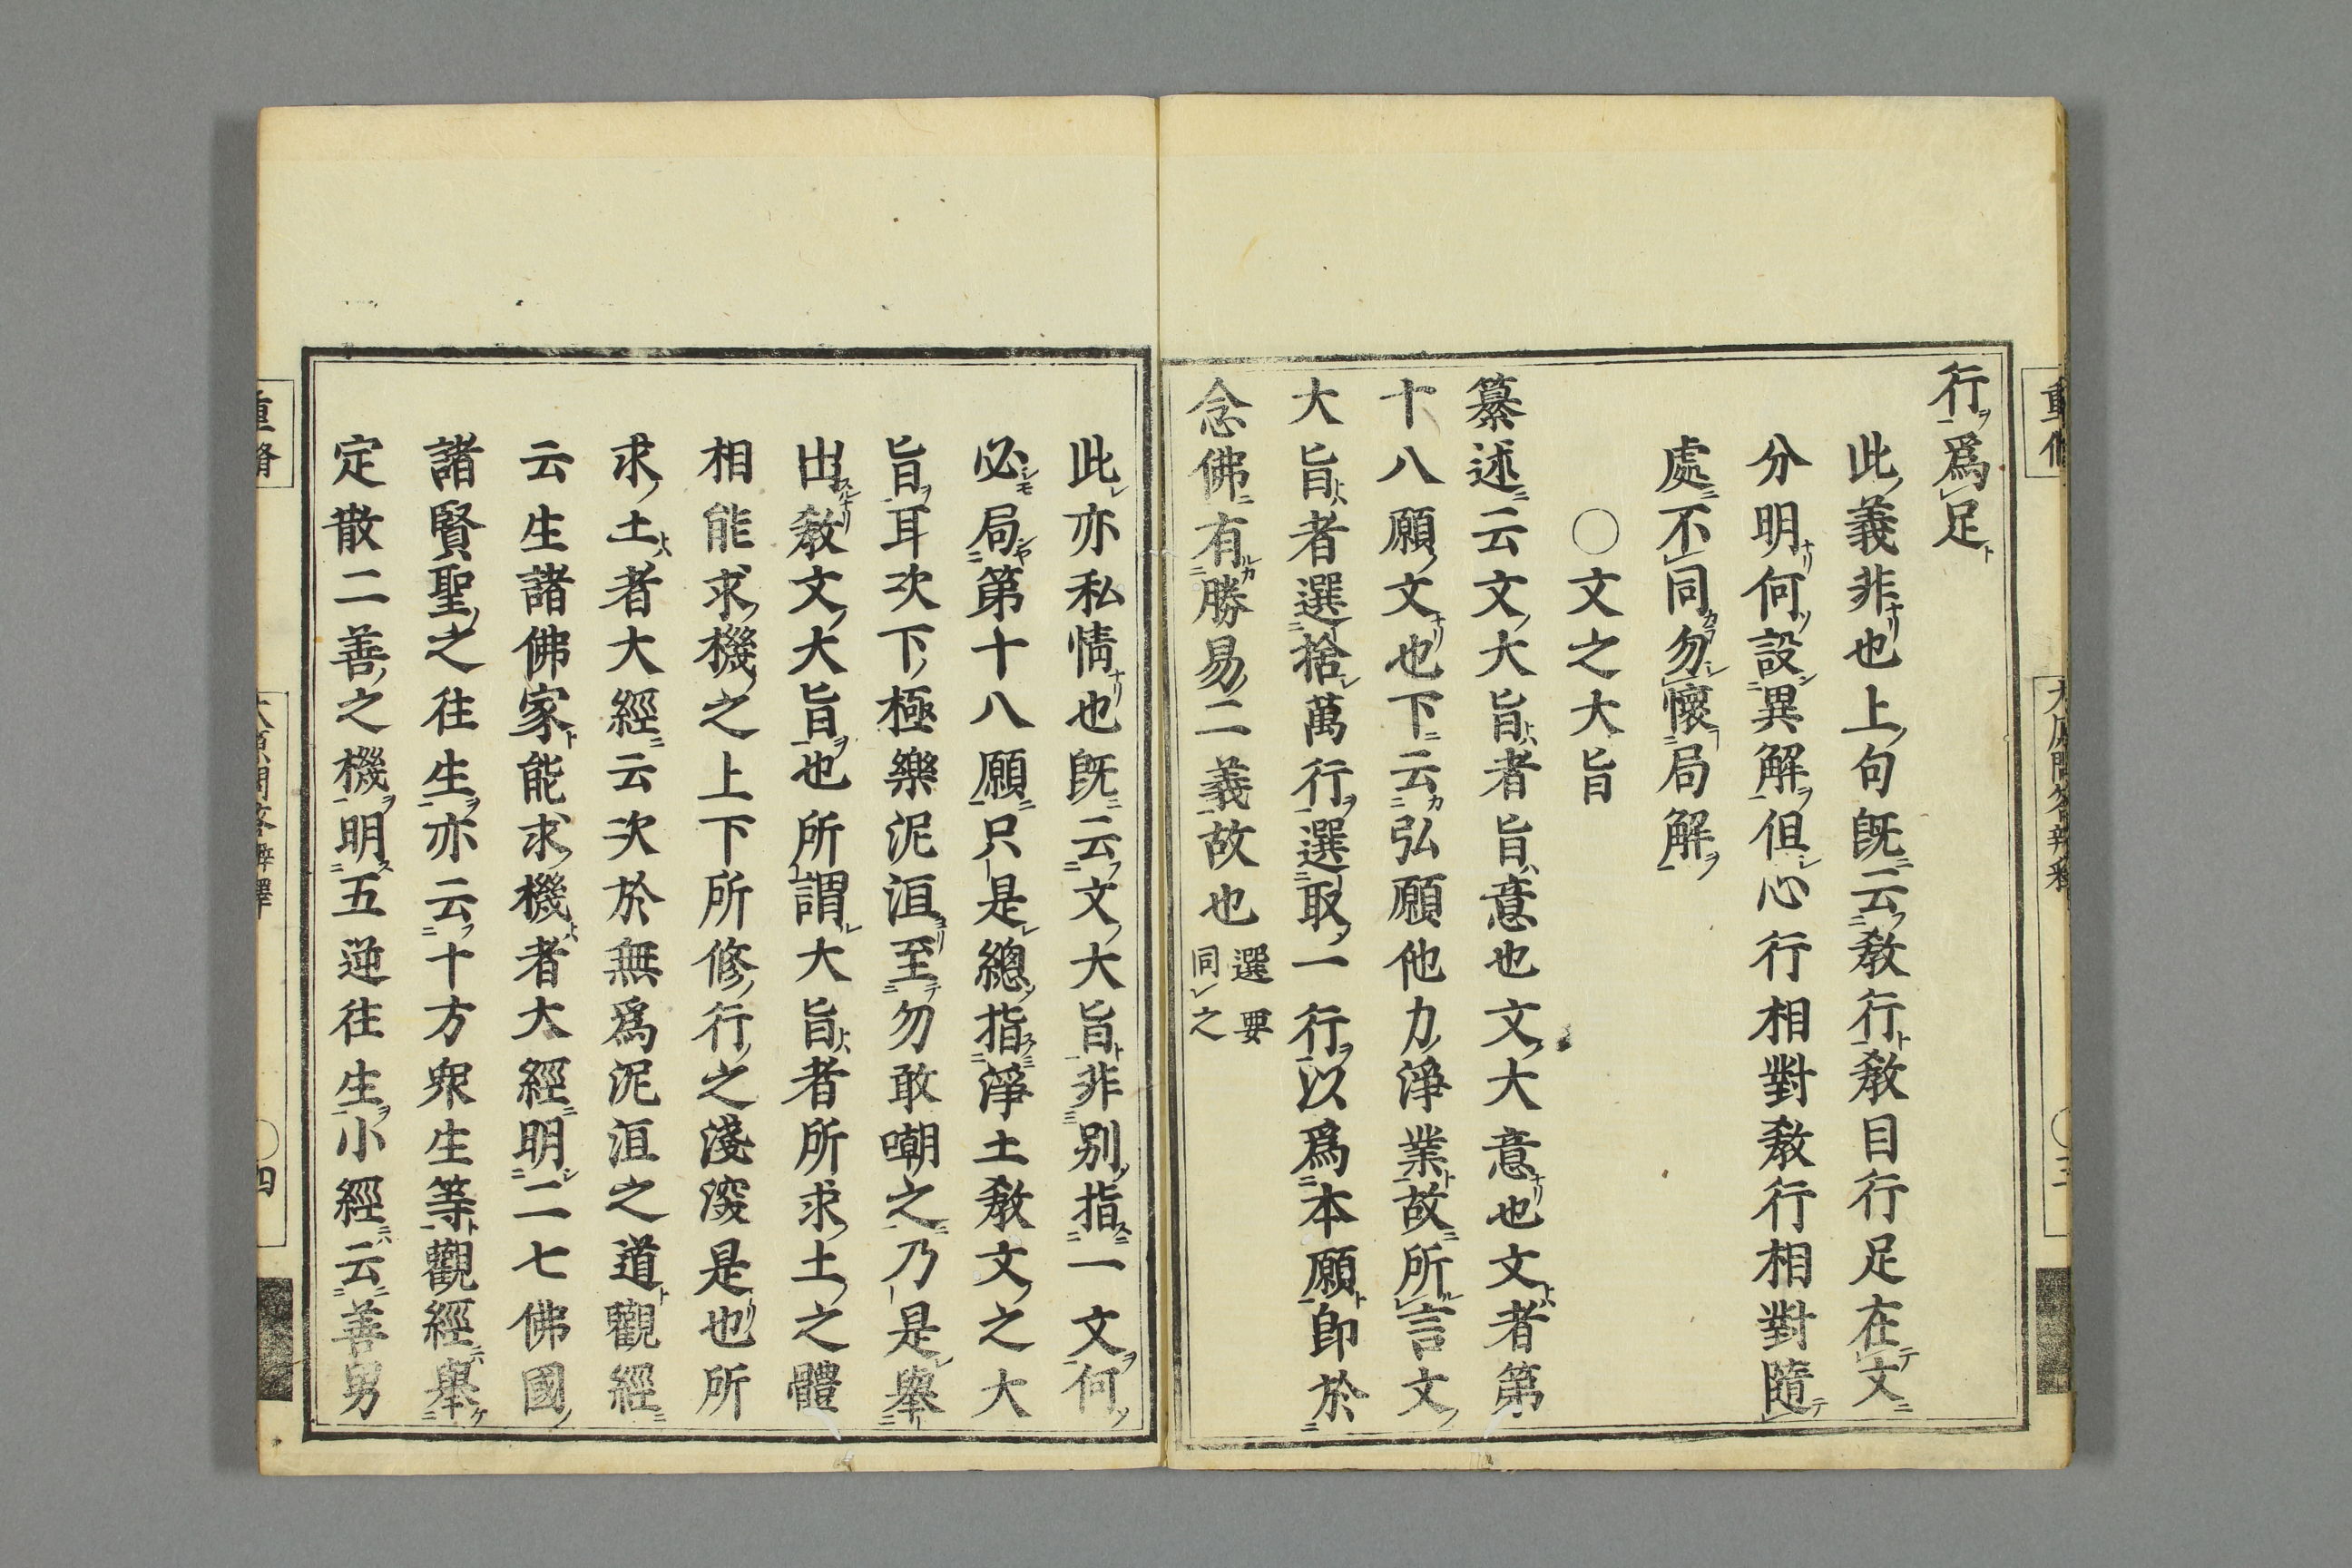 行ヲ爲足ト
此ノ義非ナリ也上ノ句既ニ云フ教行ト教目行足在テ文ニ
分明ナリ何ソ設シ異解ヲ但シ心行相對教行相對隨テ
處ニ不同カラ勿シ懷フ局解ヲ
〇文之大旨
纂述ニ云文ノ大旨トハ者旨ハ意也文ノ大意ナリ也文トハ者第
十八願ノ文ナリ也下ニ云カ弘願他力ノ淨業ト故ニ所ル言文ノ
大旨トハ者選捨シ萬行ヲ選取ノ一行ヲ以爲本願ト即於
念佛ニ有ルカ勝易ノ二義故也
選要
同レ之
此レ亦私情ナリ也既ニ云フ文ノ大旨ト非別ノ指スニ一文ヲ何ソ
必シモ局シヤ第十八願ニ只是レ總ノ指ス淨土教文ノ之大
旨ヲ耳次下ノ極樂泥洹ヨリ至テ勿敢嘲之ニ乃是レ舉
出スルナリ教文ノ大旨ヲ也所謂レ大旨トハ者所求ノ土ノ之體
相能求ノ機ノ之上下所修ノ行ノ之淺深是也所
求ノ土トハ者大經ニ云次於無爲泥洹之道ト觀經ニ
云生諸佛家ト能求ノ機トハ者大經ニ明シ二七佛國ノ
諸賢聖ノ之往生ヲ亦云フ十方衆生等ト觀經ニハ舉ケ
定散二善ノ之機ヲ明ス五逆往生ヲ小經ニハ云善男
重修
大原問答
〇三
〇四